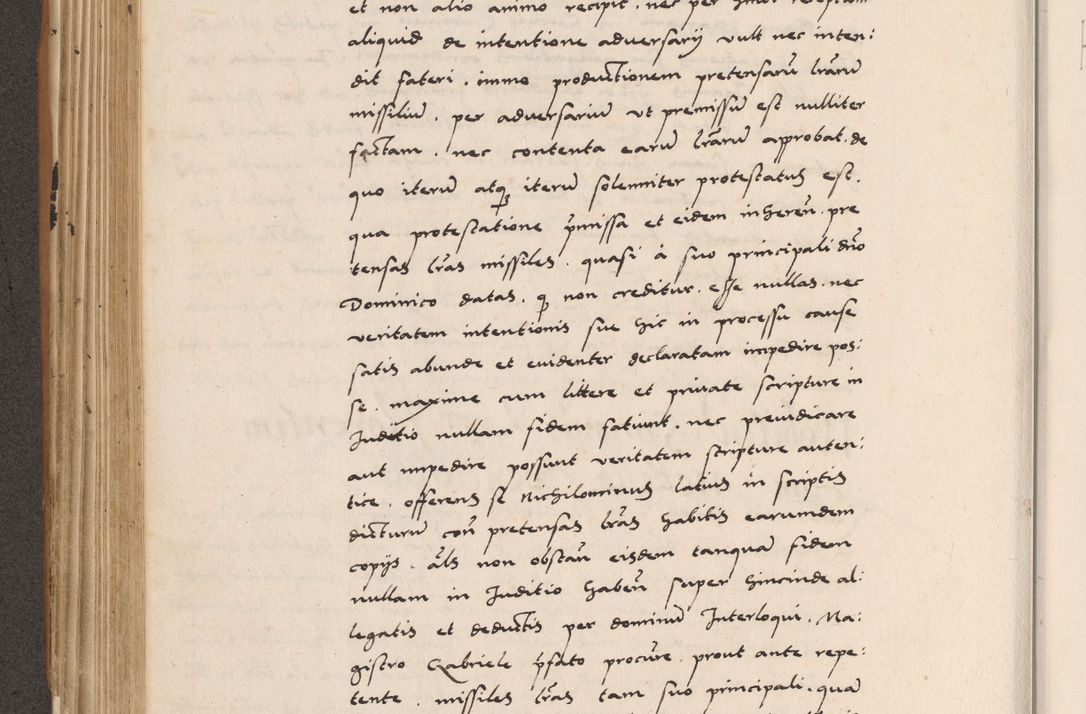 et non alio animo recipit . nec per
aliquid de intentione adversarij vult nec inten:
dit fateri . immo productionem pretensarũ lr̃arũ
missiliũ . per adversariũ ut premissũ est nulliter
factam . nec contenta earũ lr̃arũ approbat . de
quo iterũ atq̨ iterũ solenniter protestatus est .
qua protestatione p̃missa et eidem inheren̄ . pre
tensas lr̃as missiles . quasi à suo principali dn̄o
Dominico datas . q̨ non creditur . esse nullas . nec
veritatem intentionis sue hic in processu cause
satis abunde et evidenter declaratam impedire pos:
se . maxime cum littere et private scripture in
Juditio nullam fidem fatiunt . nec preiudicare
aut impedire possunt veritatem scripture auten:
tice . offerens se Nichilominus latius in scriptis
dicturũ con̄ pretensas lr̃as habitis earumdem
copijs . al̃s non obstan̄ eisdem tanquã fidem
nullam in Juditio haben̄ super hincinde al:
legatis et deductis per dominũ Interloqui . Ma:
gistro Gabriele p̃fato procur̃e . prout ante repe:
tente . missiles lr̃as tam suo principali . quã